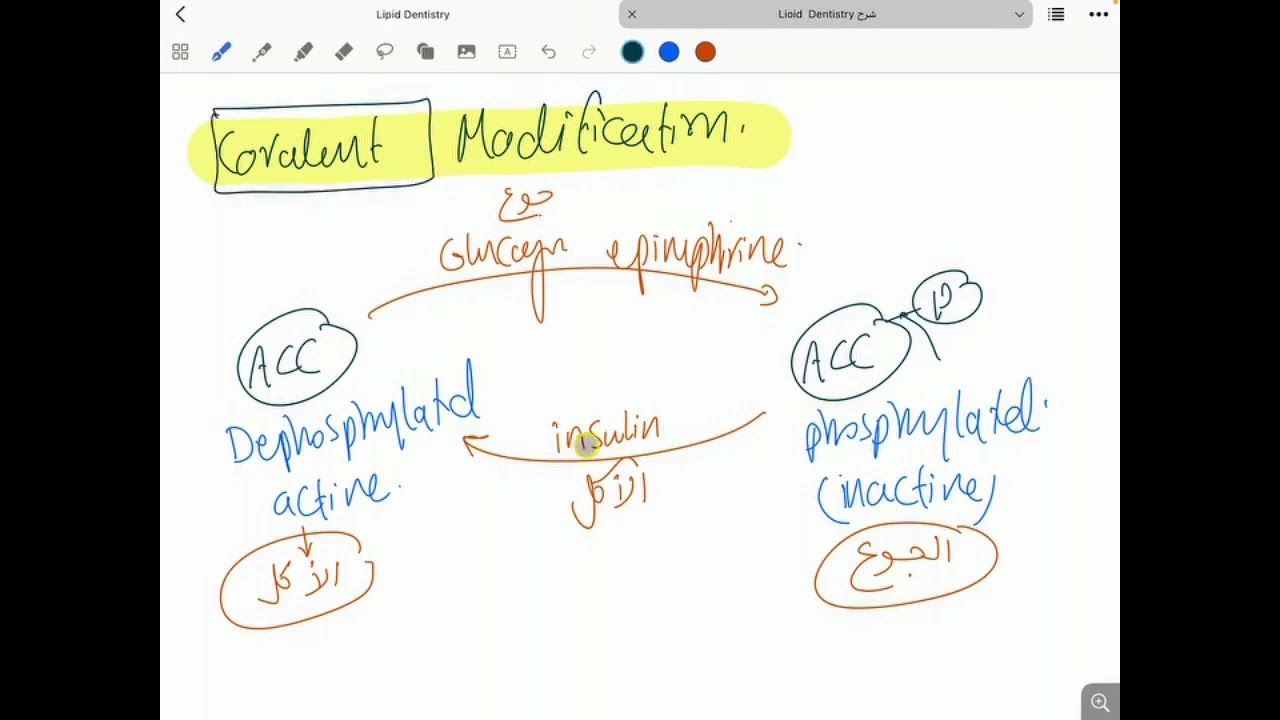 Lipid Dentistry
Lioid Dentistry شرح
Covalent Modification.
جوع
Glucagn epinephrine.
ACC
ACC P
Dephosphylatd
active.
insulin
الأكل
phosphylated.
(inactive)
الأكل
الجوع